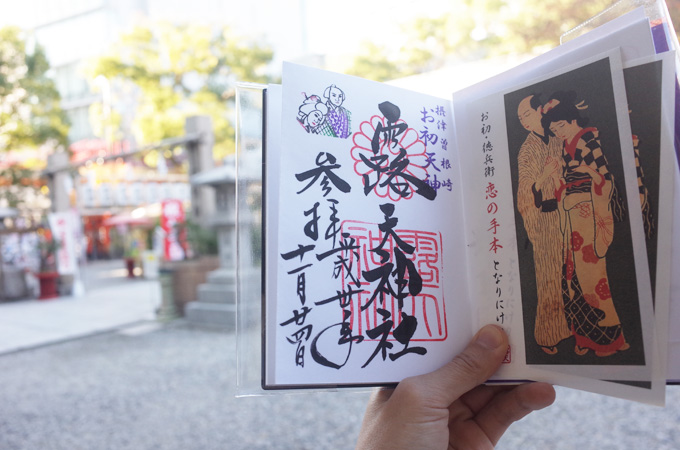 摂津曽根崎
お初天神
露天神社
参拝
平成卅年
十一月廿四日
お初・徳兵衛
恋の手本
となりにけり